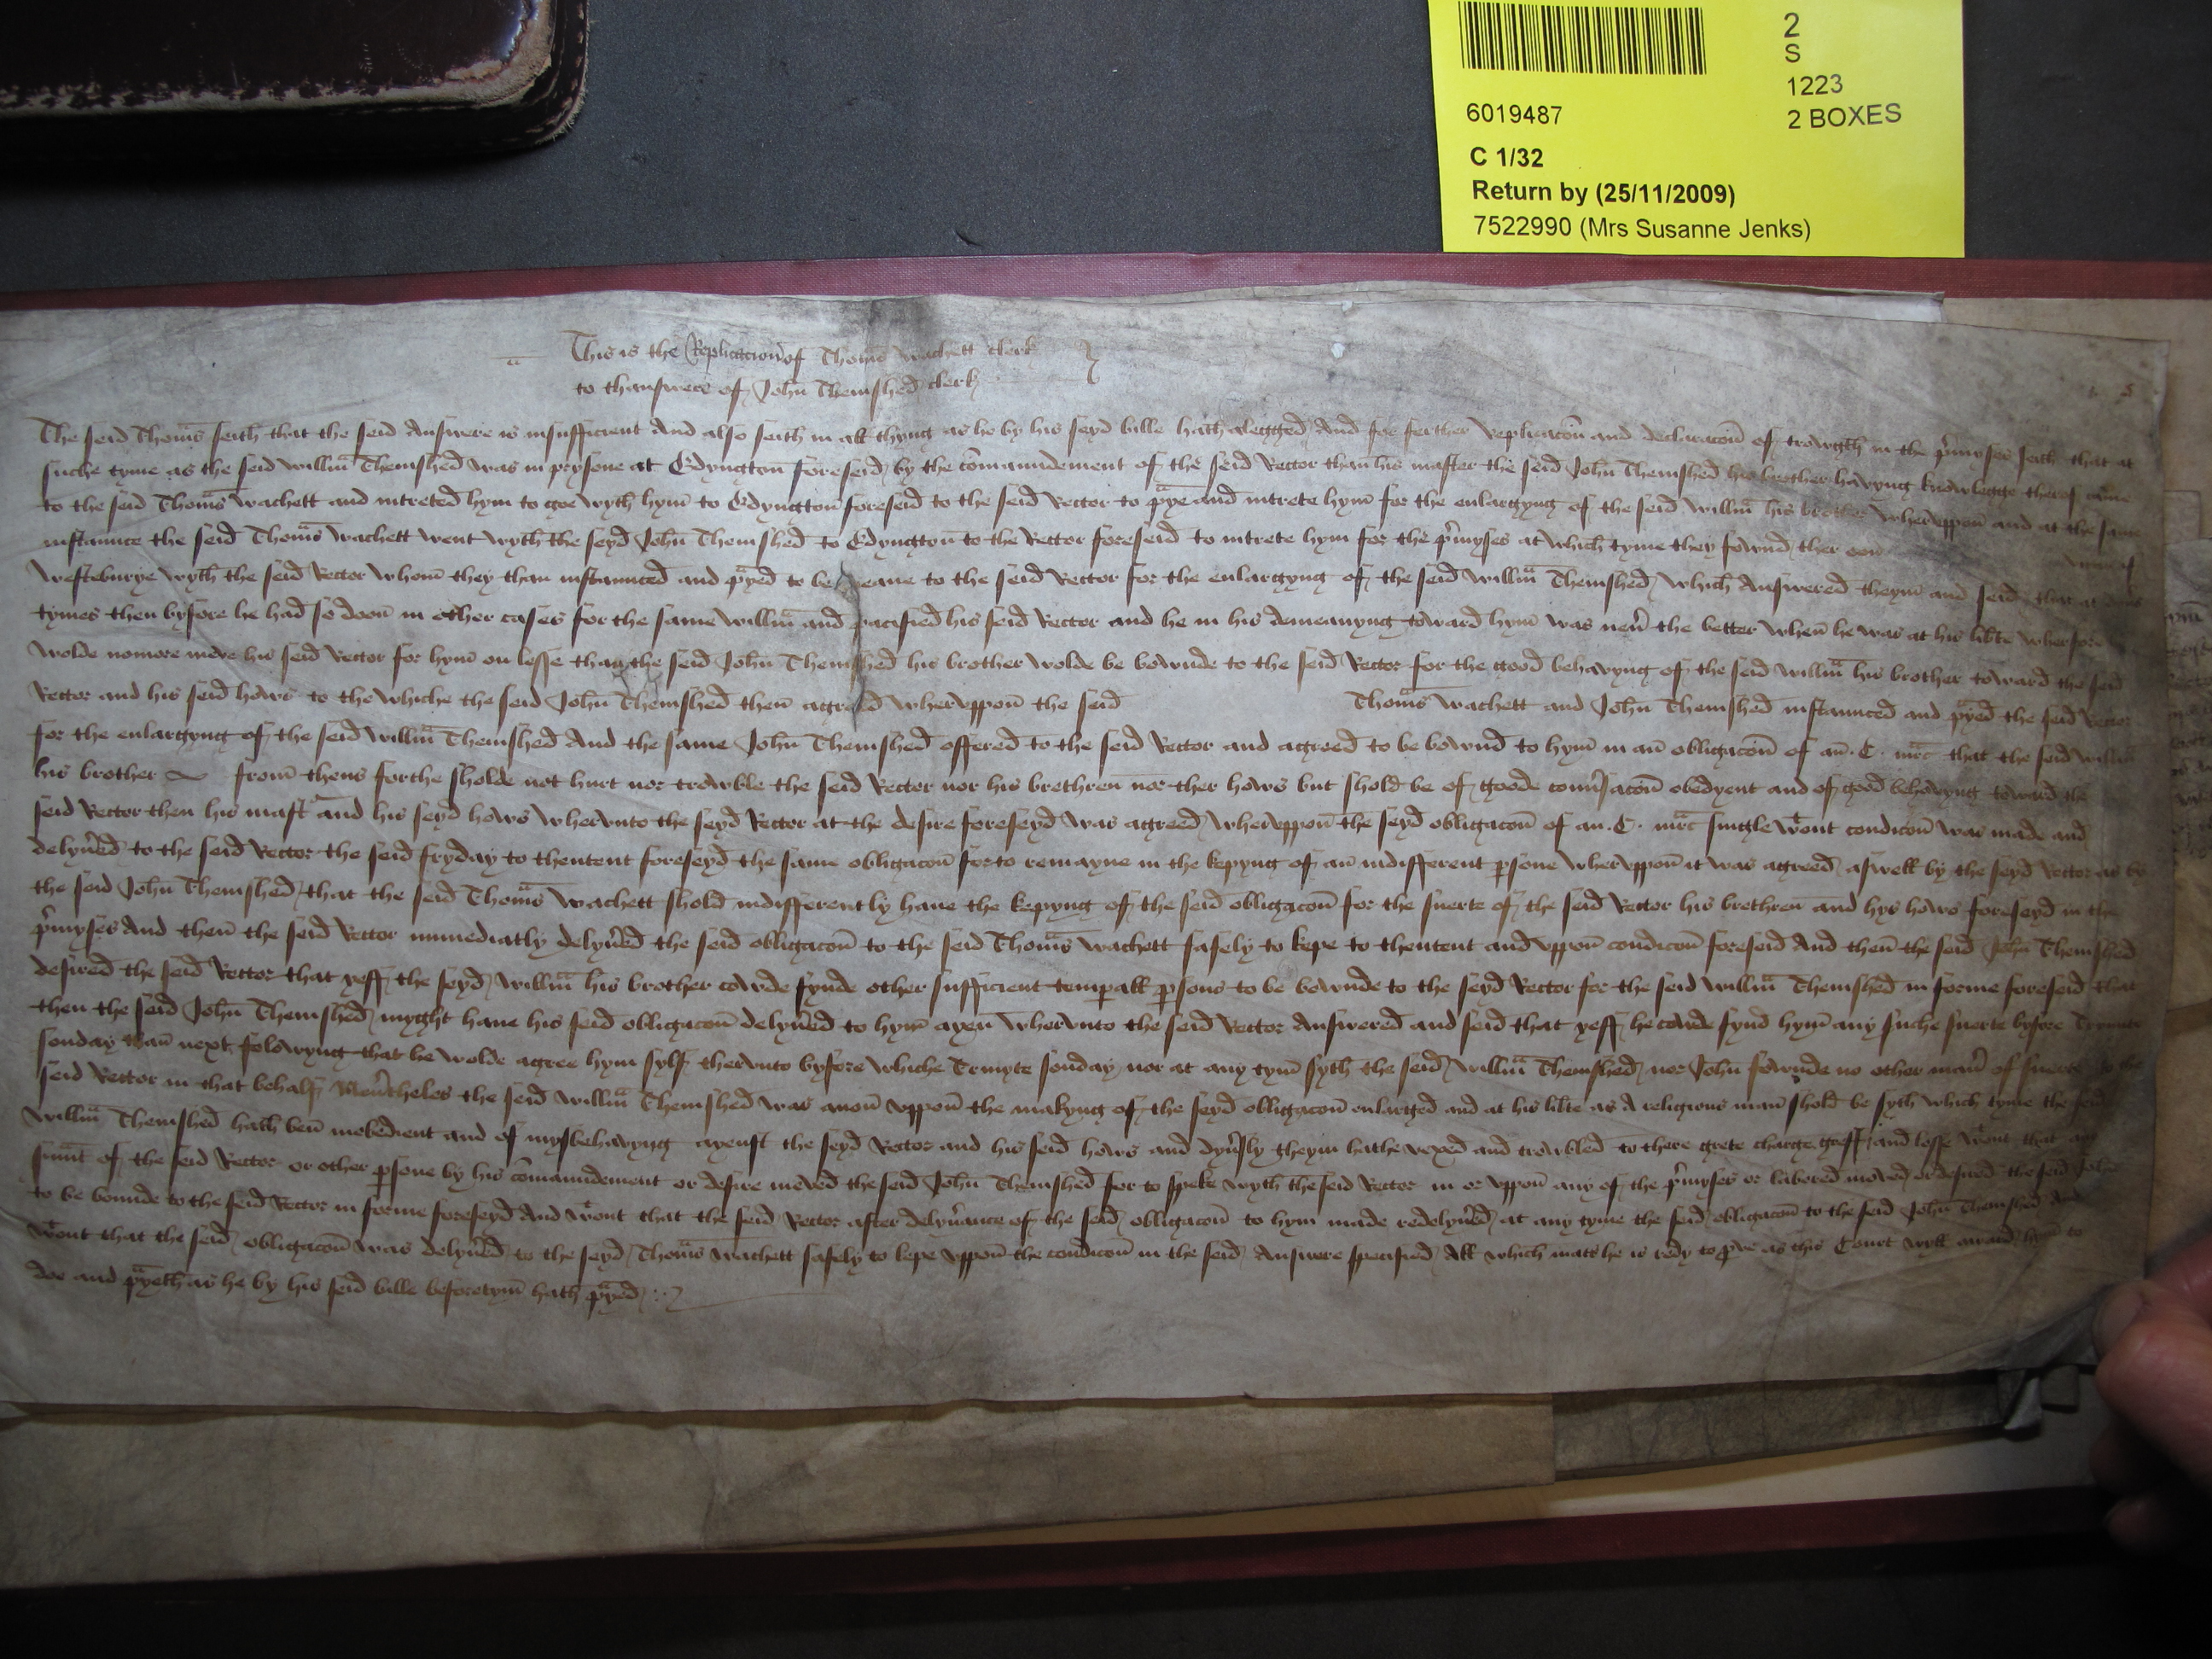 2
S
1223
6019487
2 BOXES
C 1/32
Return by (25/11/2009)
7522990 (Mrs Susanne Jenks)
This is the Replicacion of Thomas Wachett clerk
to thanswere of John Themshed clerk
The seid Thomas seith that the seid Answere is insufficient And also seith in all thyng as he by his seyd bille hath alegged And for ferther replicacon and declaracon of trowgth in the p'myses seith that at
suche tyme as the seid Willm Themshed was in prysone at Edyngton foreseid by the comaundement of the seid Rector than his master the seid John Themshed his brother havyng knowlegge therof came
to the seid Thomas Wachett and intreted hym to goe wyth hym to Edyngton foreseid to the seid Rector to praye and intrete hym for the enlargyng of the seid Willm his brother wheruppon and at the same
instaunce the seid Thomas Wachett went wyth the seyd John Themshed to Edyngton to the Rector foreseid to intrete hym for the p'myses at which tyme they fownd ther oon
Westeburye wyth the seid Rector whom they than instaunced and prayed to be meane to the seid Rector for the enlargyng of the seid Willm Themshed which Answered theym and seid that at
tymes then byfore he had so doon in other cases for the same Willm and pacified his seid Rector and he in his demeanyng toward hym was nev' the better when he was at his lib'te wherfore
wolde nomore meve his seid Rector for hym on lesse than the seid John Themshed his brother wolde be bownde to the seid Rector for the good behavyng of the seid Willm his brother toward the seid
Rector and his seid hows to the whiche the seid John Themshed then agreed wheruppon the seid Thomas Wachett and John Themshed instaunced and prayed the seid Rector
for the enlargyng of the seid Willm Themshed And the same John Themshed offered to the seid Rector and agreed to be bownd to hym in an obligacon of an .C. mrc that the seid Willm
his brother from thens forthe sholde not hurt nor trowble the seid Rector nor his brethren nor ther hows but shold be of goode conv'sacon obedyent and of good behavyng toward the
seid Rector then his mast' and his seyd hows wherunto the seyd Rector at the desire foreseyd was agreed wheruppon the seyd obligacon of an .C. mrc single wtout condicon was made and
delyv'ed to the seid Rector the seid fryday to thentent foreseyd the same obligacon forto remayne in the kepyng of an indifferent psone wheruppon it was agreed aswell by the seyd Rector as by
the seid John Themshed that the seid Thomas Wachett shold indifferently have the kepyng of the seid obligacon for the suerte of the seid Rector his brethren and hys hows foreseyd in the
p'myses And then the seid Rector immediatly delyv'ed the seid obligacon to the seid Thomas Wachett safely to kepe to thentent and uppon condicon foreseid And then the seid John Themshed
desired the seid Rector that yeff the seyd Willm his brother cowde fynde other sufficient temp'all psons to be bownde to the seyd Rector for the seid Willm Themshed in forme foreseid that
then the seid John Themshed myght have his seid obligacon delyv'ed to hym ayen wherunto the seid Rector Answered and seid that yeff he cowde fynd hym any suche suerte byfore Trynite
sonday than next folowyng that he wolde agree hym sylf therunto byfore whiche Trinyte sonday nor at any tym syth the seid Willm Themshed nor John fownde no other man' of suerte to the
seid Rector in that behalf Nev'theles the seid Willm Themshed was anon uppon the makyng of the seyd obligacon enlarged and at his lib'te as A religious man shold be syth which tyme the seid
Willm Themshed hath ben inobedient and of mysbehavyng ayenst the seyd Rector and his seid hows and dyv'sly theym hathe vexed and trowbled to there grete charge greff and losse wtout that any
s'unt of the seid Rector or other psone by his comaundement or desire meved the seid John Themshed for to speke wyth the seid Rector in or uppon any of the p'myses or labored moved or desired the seid John
to be bounde to the seid Rector in forme foreseyd And wtout that the seid Rector after delyv'ance of the seid obligacon to hym made redelyv'ed at any tyme the seid obligacon to the seid John Themshed And
wtout that the seid obligacon was delyv'ed to the seyd Thomas Wachett safely to kepe uppon the condicon in the seid Answere specified All which mat's he is redy to p've as this Court wyll award hym to
doo and prayeth as he by his seid bille beforetym hath prayed